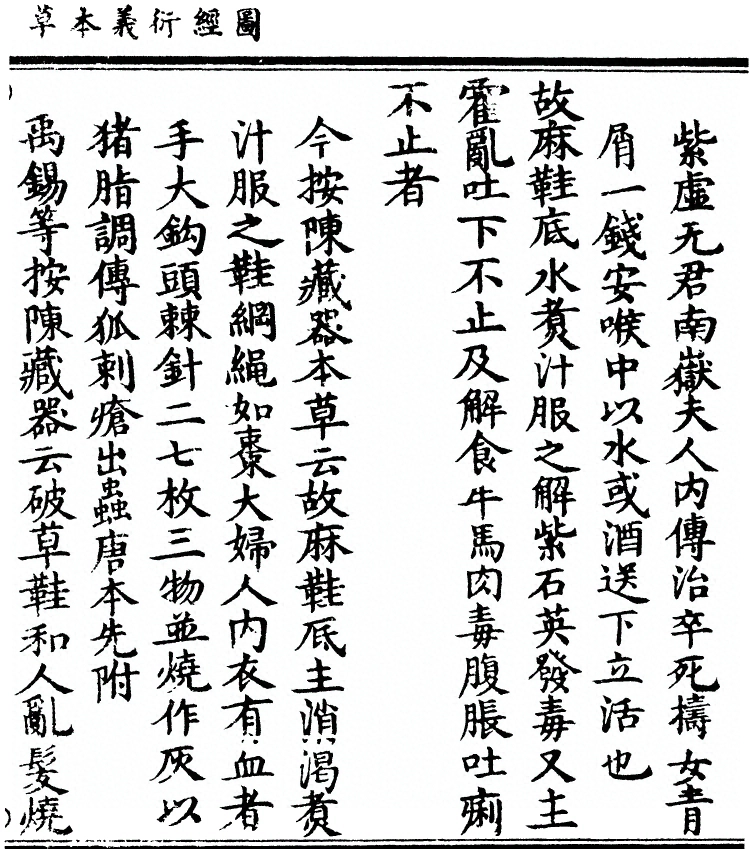 圖經衍義本草
紫虛无君南嶽夫人內傳治卒死擣女青
屑一錢安喉中以水或酒送下立活也
故麻鞋底水煑汁服之解紫石英發毒又主
霍亂吐下不止及解食牛馬肉毒腹脹吐痢
不止者
今按陳藏器本草云故麻鞋底主消渴煑
汁服之鞋綱繩如棗大婦人內衣有血者
手大鈎頭棘針二七枚三物並燒作灰以
猪脂調傅狐刺瘡出蟲唐本先附
禹錫等按陳藏器云破草鞋和人亂髮燒